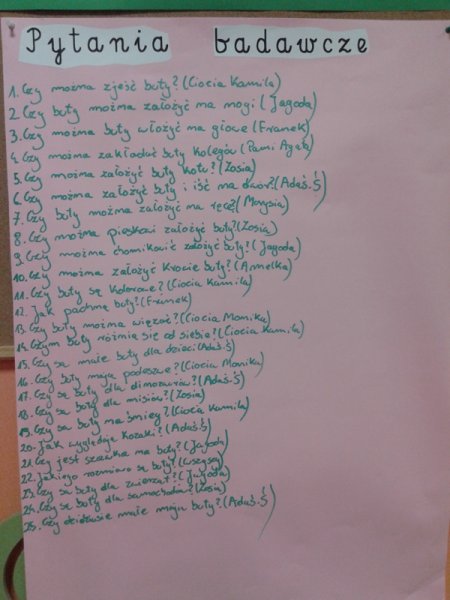 Pytania badawcze
1. Czy można zjeść buty? (Ciocia Kamila)
2. Czy buty można założyć na nogi (Jagoda)
3. Czy można buty włożyć na głowę (Franek)
4. Czy można zakładać buty kolegów (Pani Agata)
5. Czy można założyć buty kotu? (Zosia)
6. Czy można założyć buty i iść na dwór? (Adaś.Ś)
7. Czy buty można założyć na ręce? (Marysia)
8. Czy można pieskowi założyć buty? (Zosia)
9. Czy można chomikowi założyć buty? (Jagoda)
10. Czy można założyć krowie buty? (Anielka)
11. Czy buty są kolorowe? (Ciocia Kamila)
12. Jak pachną buty? (Franek)
13. Czy buty można wiązać? (Ciocia Monika)
14. Czym buty różnią się od siebie? (Ciocia Kamila)
15. Czy są małe buty dla dzieci (Adaś.Ś)
16. Czy buty mają podeszwę? (Ciocia Monika)
17. Czy są buty dla dinozaurów? (Adaś.Ś)
18. Czy są buty dla misiów? (Zosia)
19. Czy są buty na śnieg? (Ciocia Kamila)
20. Jak wyglądają kozaki? (Adaś.Ś)
21. Czy jest szafka na buty? (Jagoda)
22. Jakiego rozmiaru są buty? (Wszyscy)
23. Czy są buty dla zwierząt? (Jagoda)
24. Czy są buty dla samochodów? (Zosia)
25. Czy dzidziusie małe mają buty? (Adaś.Ś)